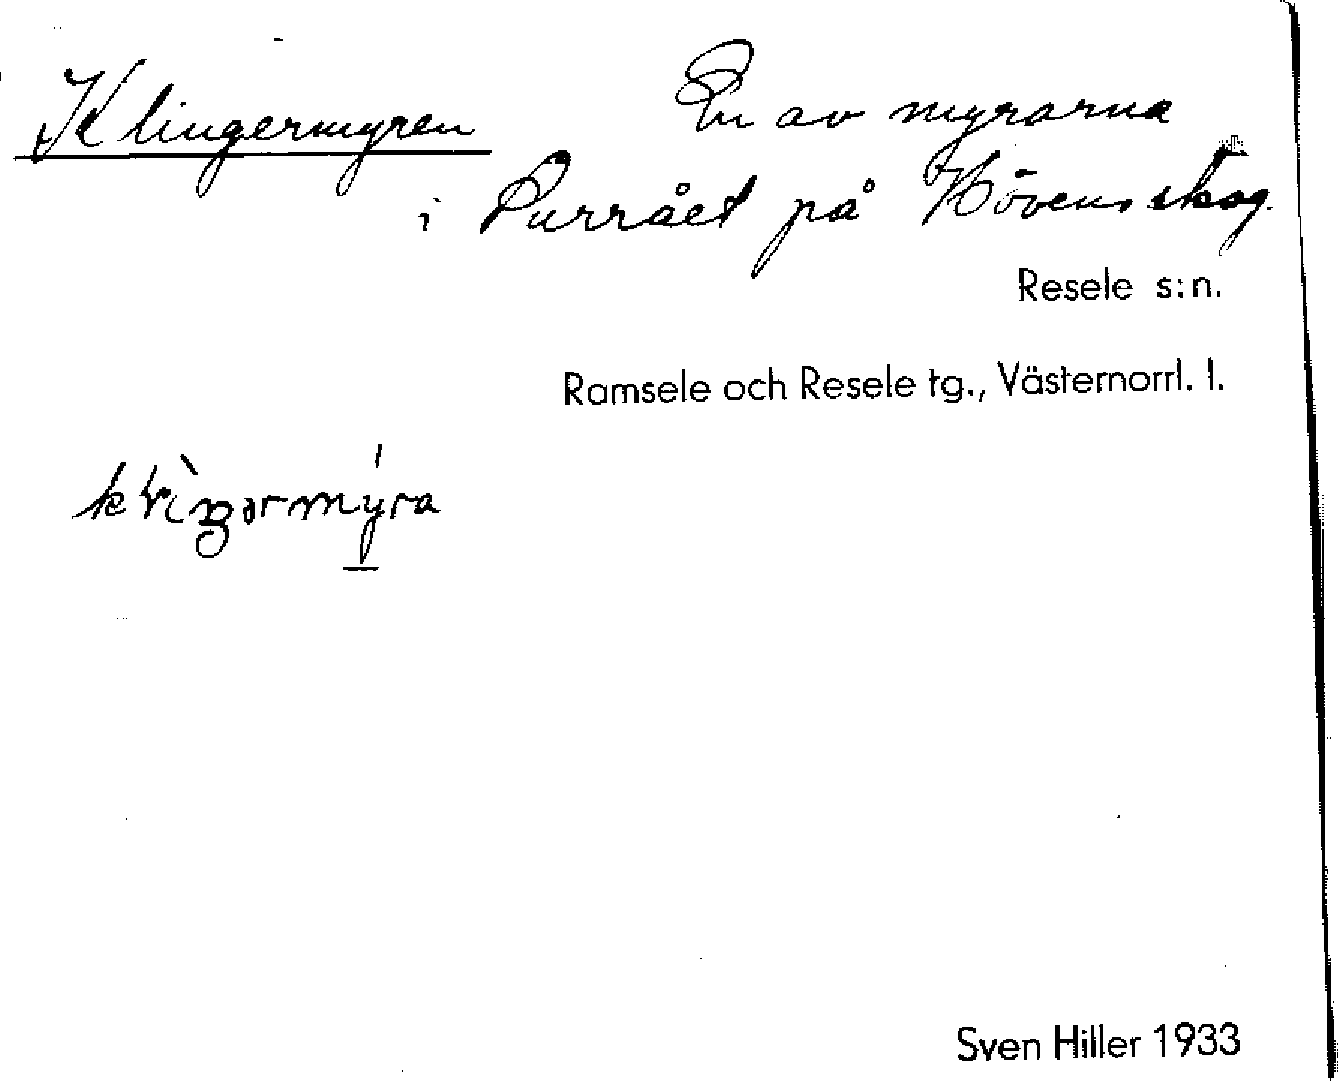 Klingermyren En av myrarna
i Purrået på Hövens skog.
Resele s:n.
Ramsele och Resele tg., Västernorrl. l.
Sven Hiller 1933